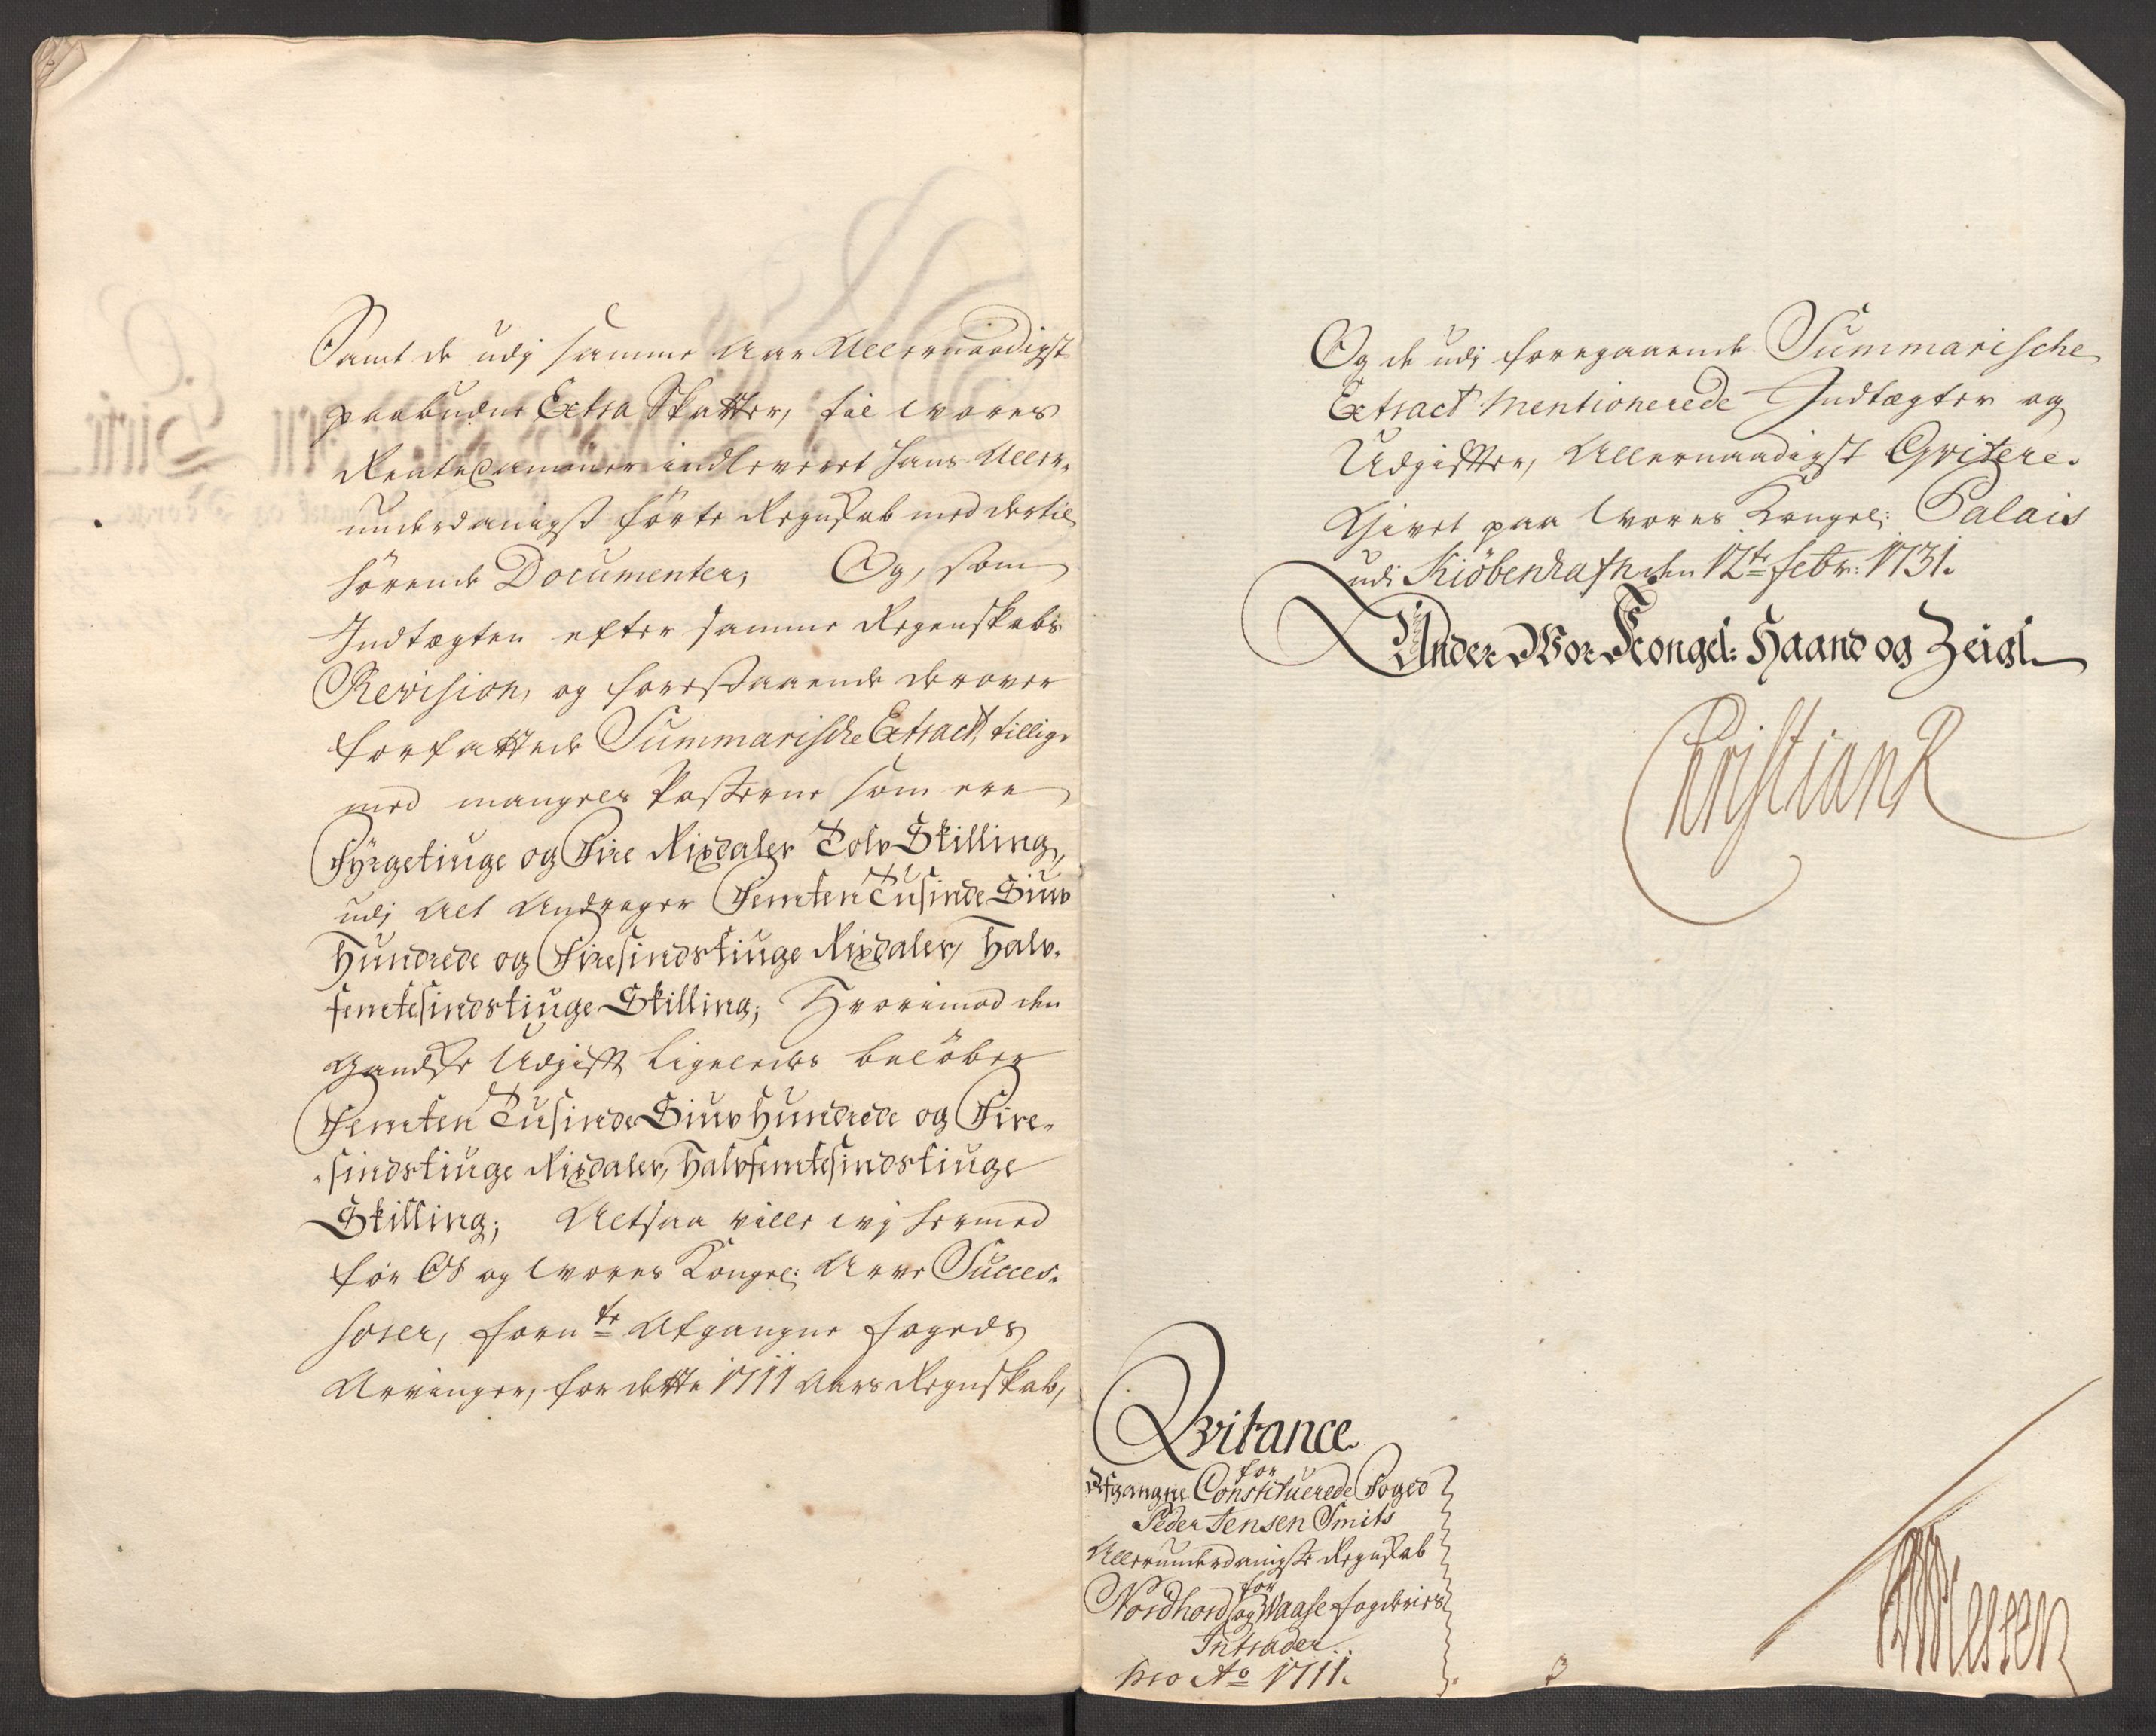 Samt de udj samme Aar Allernaadigst
paabudne Extra Skatter, til Wores
Rente Cammer indleveret hans Aller-
underdanigst förte Regnskab med dertil
hörende Documenter; Og, som
Indtægten efter samme Regenskabs
Revision, og forestaaende derover
forfattede Summarische Extract, tillige
med mangels Posterne som ere
Fyrgetiuge og Fire Rixdaler Tolv Skilling,
udj Alt Andrager Femten Tusinde Siuv
Hundrede og Firesindstiuge Rixdaler, Halv-
femtesindstiuge Skilling; Hvorimod den
Gandske Udgift Ligeledes belöber
Femten Tusinde Siuv Hundrede og Fire-
sindstiuge Rixdaler, Halvfemtesindstiuge
Skilling; Altsaa ville wj hermed
for Os og Wores Kongel: Arve Succes-
sorer, forn:te Afgangne fogeds
Arvinger, for dette 1711 Aars Regnskab,
Og de udj foregaaende Summarische
Extract Mentionerede Indtægter og
Udgifter, Allernaadigst Qvitere.
Givet paa Wores Kongel: Palais
udi Kiöbenhafn den 12te febr: 1731.
Under Wor Kongel: Haand og Zeigl
Christian R
Qvitance
for
Afgangne Constituerede Foged
Peder Jensen Smits
Allerunderdanigste Regnskab
for
Nordhord og Waase fogderies
Intrader
pro Ao 1711.